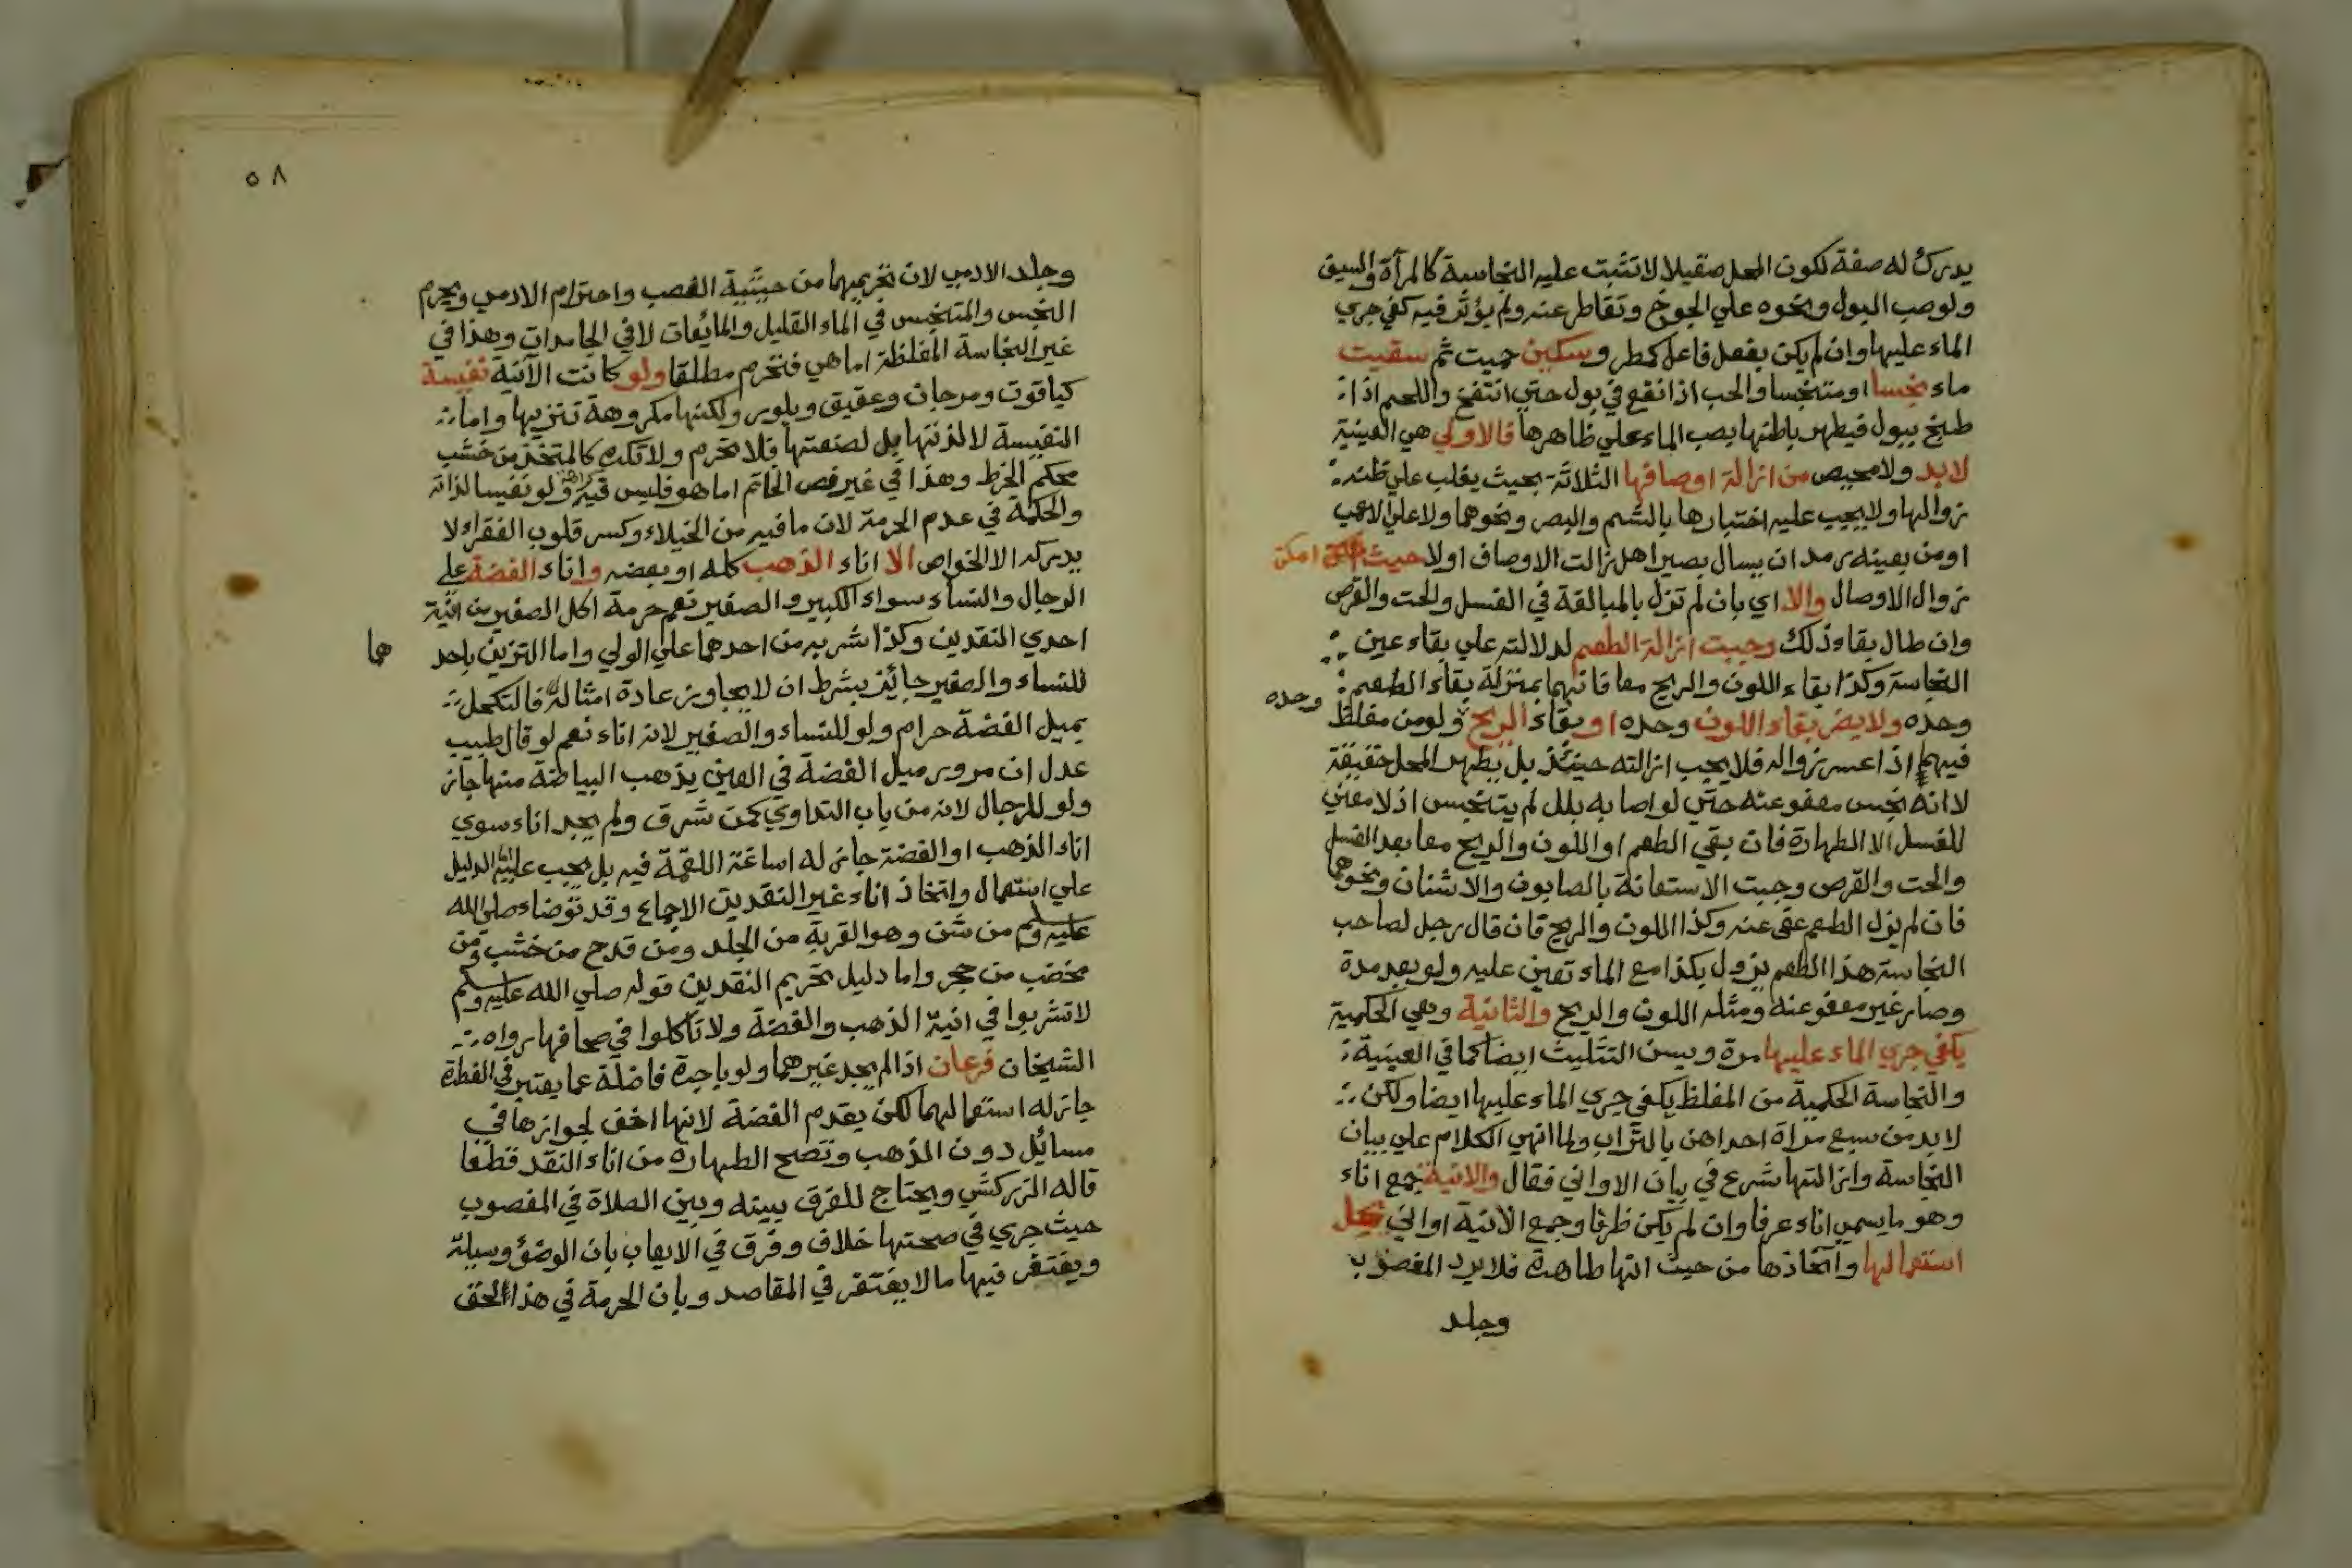 يدرك له صفة لكون المحل صقيلا لا تثبت عليه النجاسة كالمرآة والسيف
ولو صب البول ونحوه علي الجوخ وتقاطر عنه ولم يؤثر فيه كفي جري
الماء عليها وان لم يكن بفعل فاعل كمطر وسكين حميت ثم سقيت
ماء نجسا او متنجسا والحب اذا نقع في بول حتي انتفخ واللحم اذا
طبخ ببول فيطهر باطنها بصب الماء علي ظاهرها فالاولي هي العينية
لابد ولا محيص من ازالة اوصافها الثلاثة بحيث يغلب علي ظنه
زوالها ولا يجب عليه اختبارها بالشم والبصر ونحوهما ولا علي الاعمي
او من بعينه رمد ان يسال بصيرا هل زالت الاوصاف اولا حيث امكن
زوال الاوصال والا اي بان لم تزل بالمبالغة في الغسل والحت والقرص
وان طال بقاء ذلك وجبت ازالة الطعم لدلالته علي بقاء عين
النجاسة وكذا بقاء اللون والريح معا فانهما بمنزلة بقاء الطعم
وحده
وحده ولا يضر بقاء اللون وحده او بقاء الريح ولو من مغلظ
فيهما اذا عسر زواله فلا يجب ازالته حينئذ بل يطهر المحل حقيقة
لا انه نجس معفو عنه حتي لو اصابه بلل لم يتنجس اذ لا معني
للغسل الا الطهارة فان بقي الطعم او اللون والريح معا بعد الغسل
والحت والقرص وجبت الاستعانة بالصابون والاشنان ونحوهما
فان لم يزل الطعم عفي عنه وكذا اللون والريح فان قال رجل لصاحب
النجاسة هذا الطعم يزول بكذا مع الماء تعين عليه ولو بعد مدة
وصار غير معفو عنه ومثله اللون والريح والثانية وهي الحكمية
يكفي جري الماء عليها مرة ويسن التثليث ايضا كما في العينية
والنجاسة الحكمية من المغلظ يكفي جري الماء عليها ايضا ولكن
لا بد من سبع مراة احداهن بالتراب ولما انهي الكلام علي بيان
النجاسة وازالتها شرع في بيان الاواني فقال والانية جمع اناء
وهو ما يسمي اناء عرفا وان لم يكن ظرفا وجمع الانية اواني يحل
استعمالها واتخاذها من حيث انها طاهرة فلا يرد المغصوب
وجلد
٥٨
وجلد الادمي لان تحريمهما من حيثية الغصب واحترام الادمي ويحرم
النجس والمتنجس في الماء القليل والمائعات لا في الجامدات وهذا في
غير النجاسة المغلظة اما هي فتحرم مطلقا ولو كانت الآنية نفيسة
كياقوت ومرجان وعقيق وبلور ولكنها مكروهة تنزيها واما
النفيسة لا لذتها بل لصنعتها فلا تحرم ولا تكره كالمتخذ من خشب
محكم الخرط وهذا في غير فص الخاتم اما هو فليس فيه كراهة ولو نفيسا لذاته
والحكمة في عدم الحرمة لان ما فيه من الخيلاء وكسر قلوب الفقراء لا
يدركه الا الخواص الا اناء الذهب كله او بعضه واناء الفضة علي
الرجال والنساء سواء الكبير والصغير نعم حرمة اكل الصغير من انية
احدي النقدين وكذا شربه من احدهما علي الولي واما التزين باحد
هما
للنساء والصغير جائز بشرط ان لا يجاوز عادة امثاله فالتكحل
بميل الفضة حرام ولو للنساء والصغير لانه اناء نعم لو قال طبيب
عدل ان مرور ميل الفضة في العين يذهب البياضة منها جاز
ولو للرجال لانه من باب التداوي كمن شرق ولم يجد اناء سوي
اناء الذهب او الفضة جاز له اساغة اللقمة فيه بل يجب عليه الدليل
علي استعمال واتخاذ اناء غير النقدين الاجماع وقد توضاء صلي الله
عليه وسلم من شن وهو القربة من الجلد ومن قدح من خشب ومن
مخضب من حجر واما دليل تحريم النقدين قوله صلي الله عليه وسلم
لا تشربوا في انية الذهب والفضة ولا تأكلوا في صحافها رواه
الشيخان فرعان اذا لم يجد غيرهما ولو باجرة فاضلة عما يعتبر في الفطرة
جاز له استعمالهما لكن يقدم الفضة لانها اخف لجوازها في
مسائل دون الذهب وتصح الطهارة من اناء النقد قطعا
قاله الزركشي ويحتاج للفرق بينه وبين الصلاة في المغصوب
حيث جري في صحتها خلاف وفرق في الايعاب بان الوضؤ وسيلة
ويغتفر فيها ما لا يغتفر في المقاصد وبان الحرمة في هذا اخف